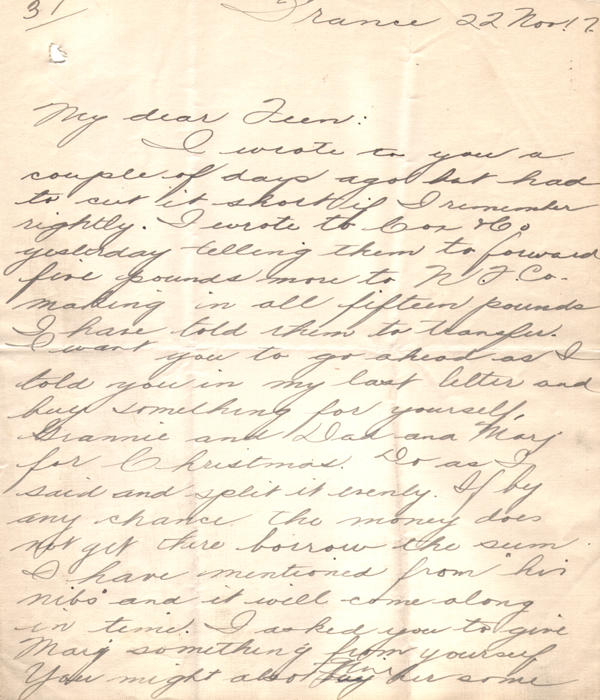 31
France 22 Nov. 17.
My dear Teen:
I wrote to you a
couple of days ago but had
to cut it short if I remember
rightly. I wrote to Cox & Co
yesterday telling them to forward
five pounds more to N. T. Co.
making in all fifteen pounds
I have told them to transfer.
I want you to go ahead as I
told you in my last letter and
buy something for yourself,
Grannie and Dad and Marj
for Christmas. Do as I
said and split it evenly. If by
any chance the money does
not get there borrow the sum
I have mentioned from "his
nibs" and it will come along
in time. I asked you to give
Marj something from yourself
You might also give her some